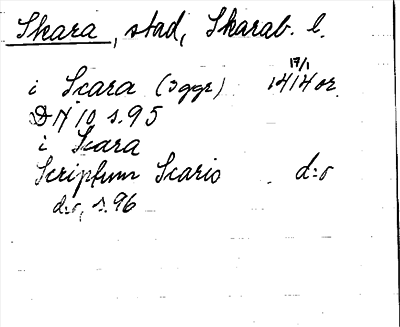 Skara, stad, Skarab. l.
i Scara (3ggr) 17/1 1414 or.
DN 10 s.95
i Scara
Scriptum Scaris d:o
d:o, s.96